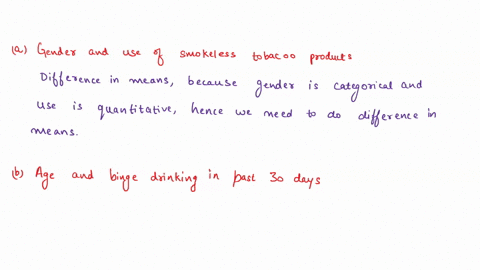 (a) Gender and use of smokeless tobacoo products
Difference in means, because gender is categorical and
use is quantitative, hence we need to do difference in
means.
(b) Age and binge drinking in past 30 days